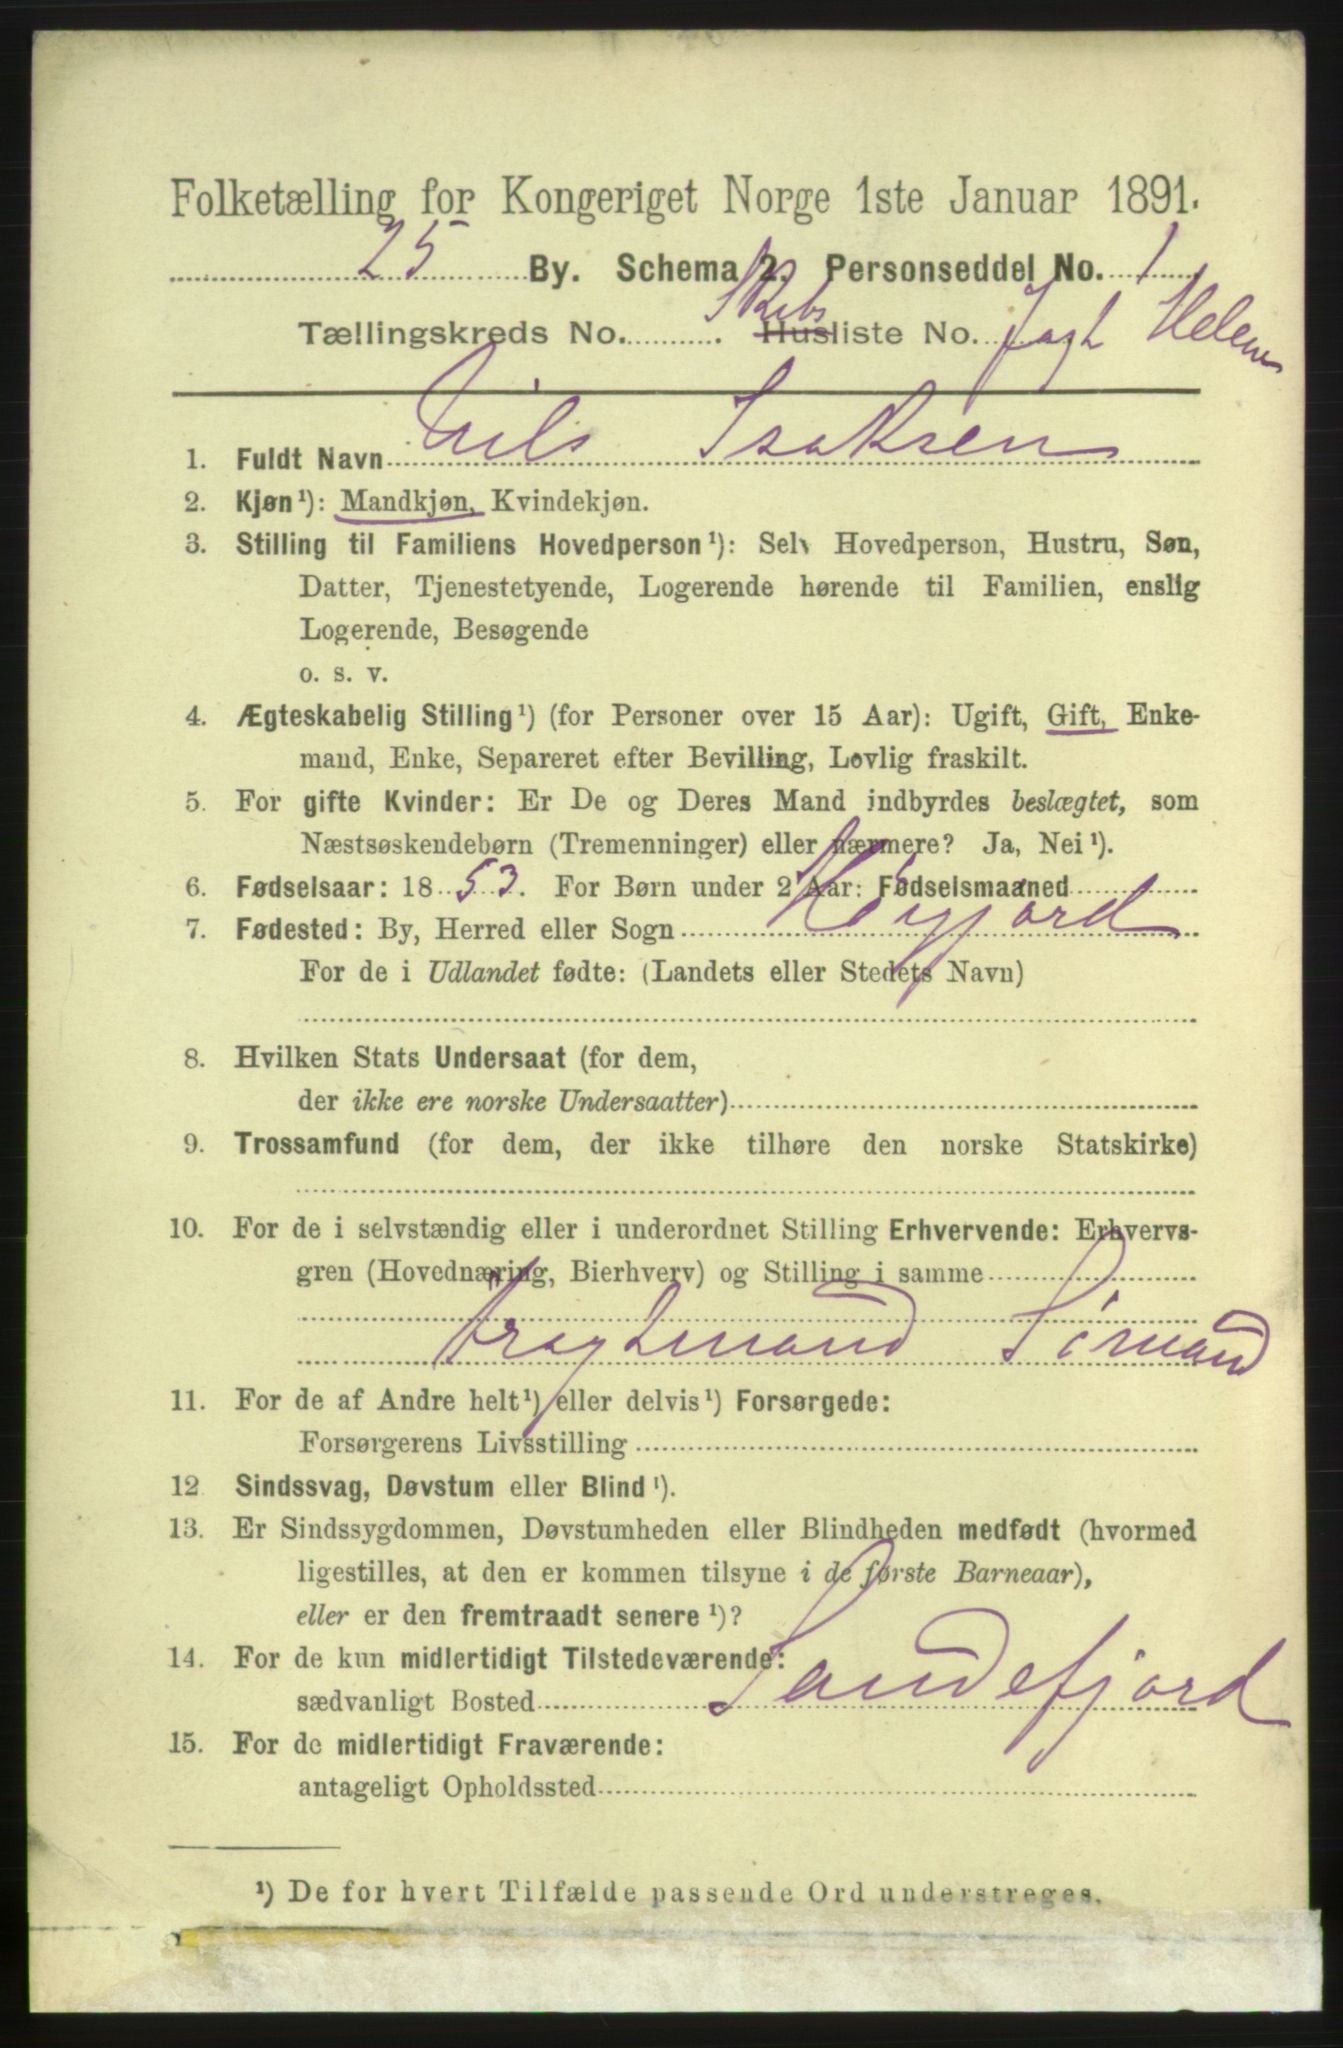 Folketælling for Kongeriget Norge 1ste Januar 1891.
25 By. Schema 2. Personseddel No. 1
Tællingskreds No. . Skibs Husliste No. Jagt Helene
1. Fuldt Navn Nils Isaksen
2. Kjøn¹): Mandkjøn, Kvindekjøn.
3. Stilling til Familiens Hovedperson¹): Selv Hovedperson, Hustru, Søn,
Datter, Tjenestetyende, Logerende hørende til Familien, enslig
Logerende, Besøgende
o. s. v.
4. Ægteskabelig Stilling¹) (for Personer over 15 Aar): Ugift, Gift, Enke-
mand, Enke, Separeret efter Bevilling, Lovlig fraskilt.
5. For gifte Kvinder: Er De og Deres Mand indbyrdes beslægtet, som
Næstsøskendebørn (Tremenninger) eller nærmere? Ja, Nei¹).
6. Fødselsaar: 1853. For Børn under 2 Aar: Fødselsmaaned
7. Fødested: By, Herred eller Sogn Høyjord
For de i Udlandet fødte: (Landets eller Stedets Navn)
8. Hvilken Stats Undersaat (for dem,
der ikke ere norske Undersaatter)
9. Trossamfund (for dem, der ikke tilhøre den norske Statskirke)
10. For de i selvstændig eller i underordnet Stilling Erhvervende: Erhvervs-
gren (Hovednæring, Bierhverv) og Stilling i samme
Fragtmand Sömand
11. For de af Andre helt¹) eller delvis¹) Forsørgede:
Forsørgerens Livsstilling
12 Sindssvag, Døvstum eller Blind¹).
13. Er Sindssygdommen, Døvstumheden eller Blindheden medfødt (hvormed
ligestilles, at den er kommen tilsyne i de første Barneaar),
eller er den fremtraadt senere¹)?
14. For de kun midlertidigt Tilstedeværende:
sædvanligt Bosted Sandefjord
15. For de midlertidigt Fraværende:
antageligt Opholdssted
¹) De for hvert Tilfælde passende Ord understreges.